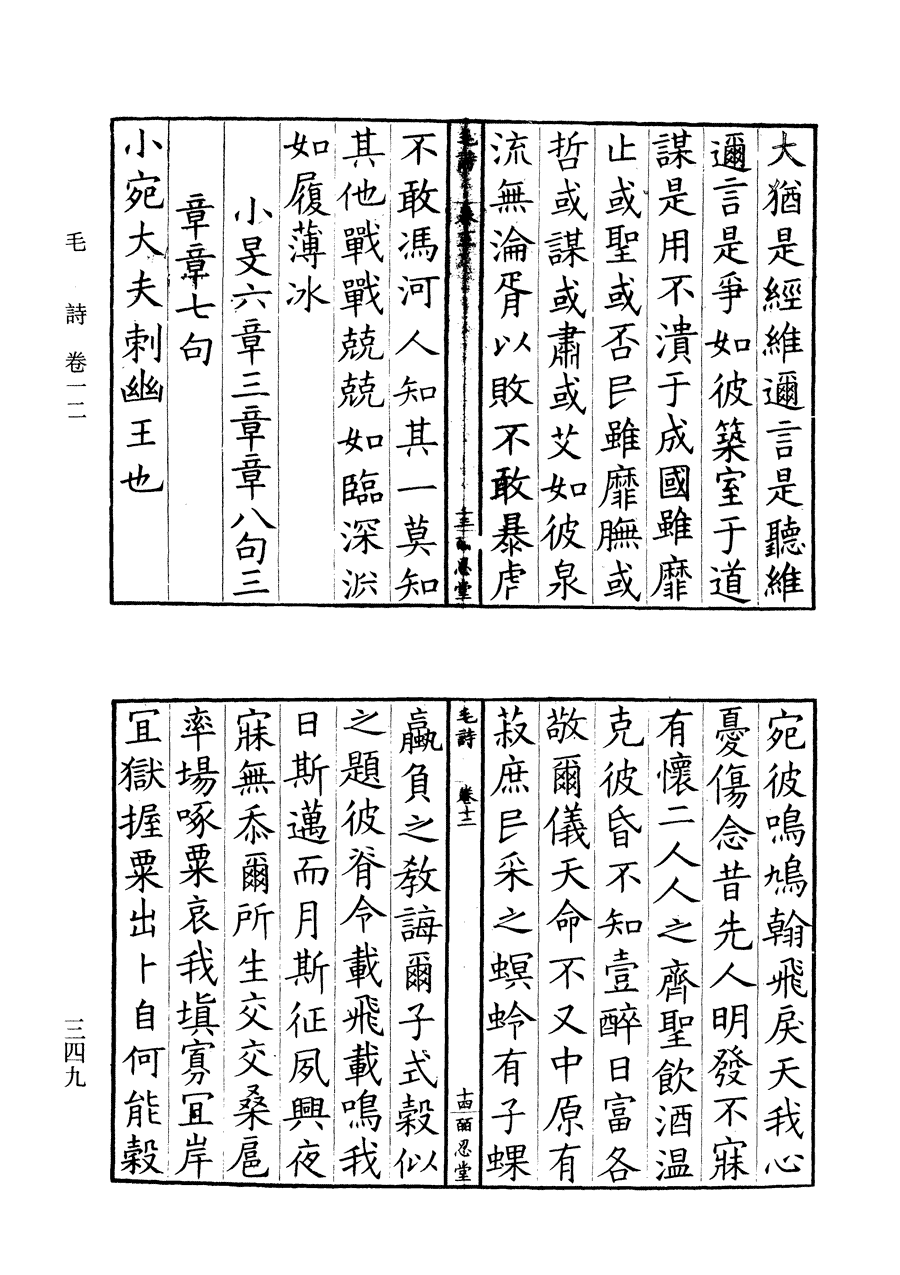 大猶是經維邇言是聽維
邇言是爭如彼築室于道
謀是用不潰于成國雖靡
止或聖或否民雖靡膴或
哲或謀或肅或艾如彼泉
流無淪胥以敗不敢暴虎
毛詩 卷十二 十三 皕忍堂
不敢馮河人知其一莫知
其他戰戰兢兢如臨深淵
如履薄冰
小旻六章三章章八句三
章章七句
小宛大夫刺幽王也
宛彼鳴鳩翰飛戾天我心
憂傷念昔先人明發不寐
有懷二人人之齊聖飲酒溫
克彼昏不知壹醉日富各
敬爾儀天命不又中原有
菽庶民采之螟蛉有子蜾
毛詩 卷十二 十四 皕忍堂
蠃負之教誨爾子式穀似
之題彼脊令載飛載鳴我
日斯邁而月斯征夙興夜
寐無忝爾所生交交桑扈
率場啄粟哀我填寡宜岸
宜獄握粟出卜自何能穀
毛詩 卷一二
三四九